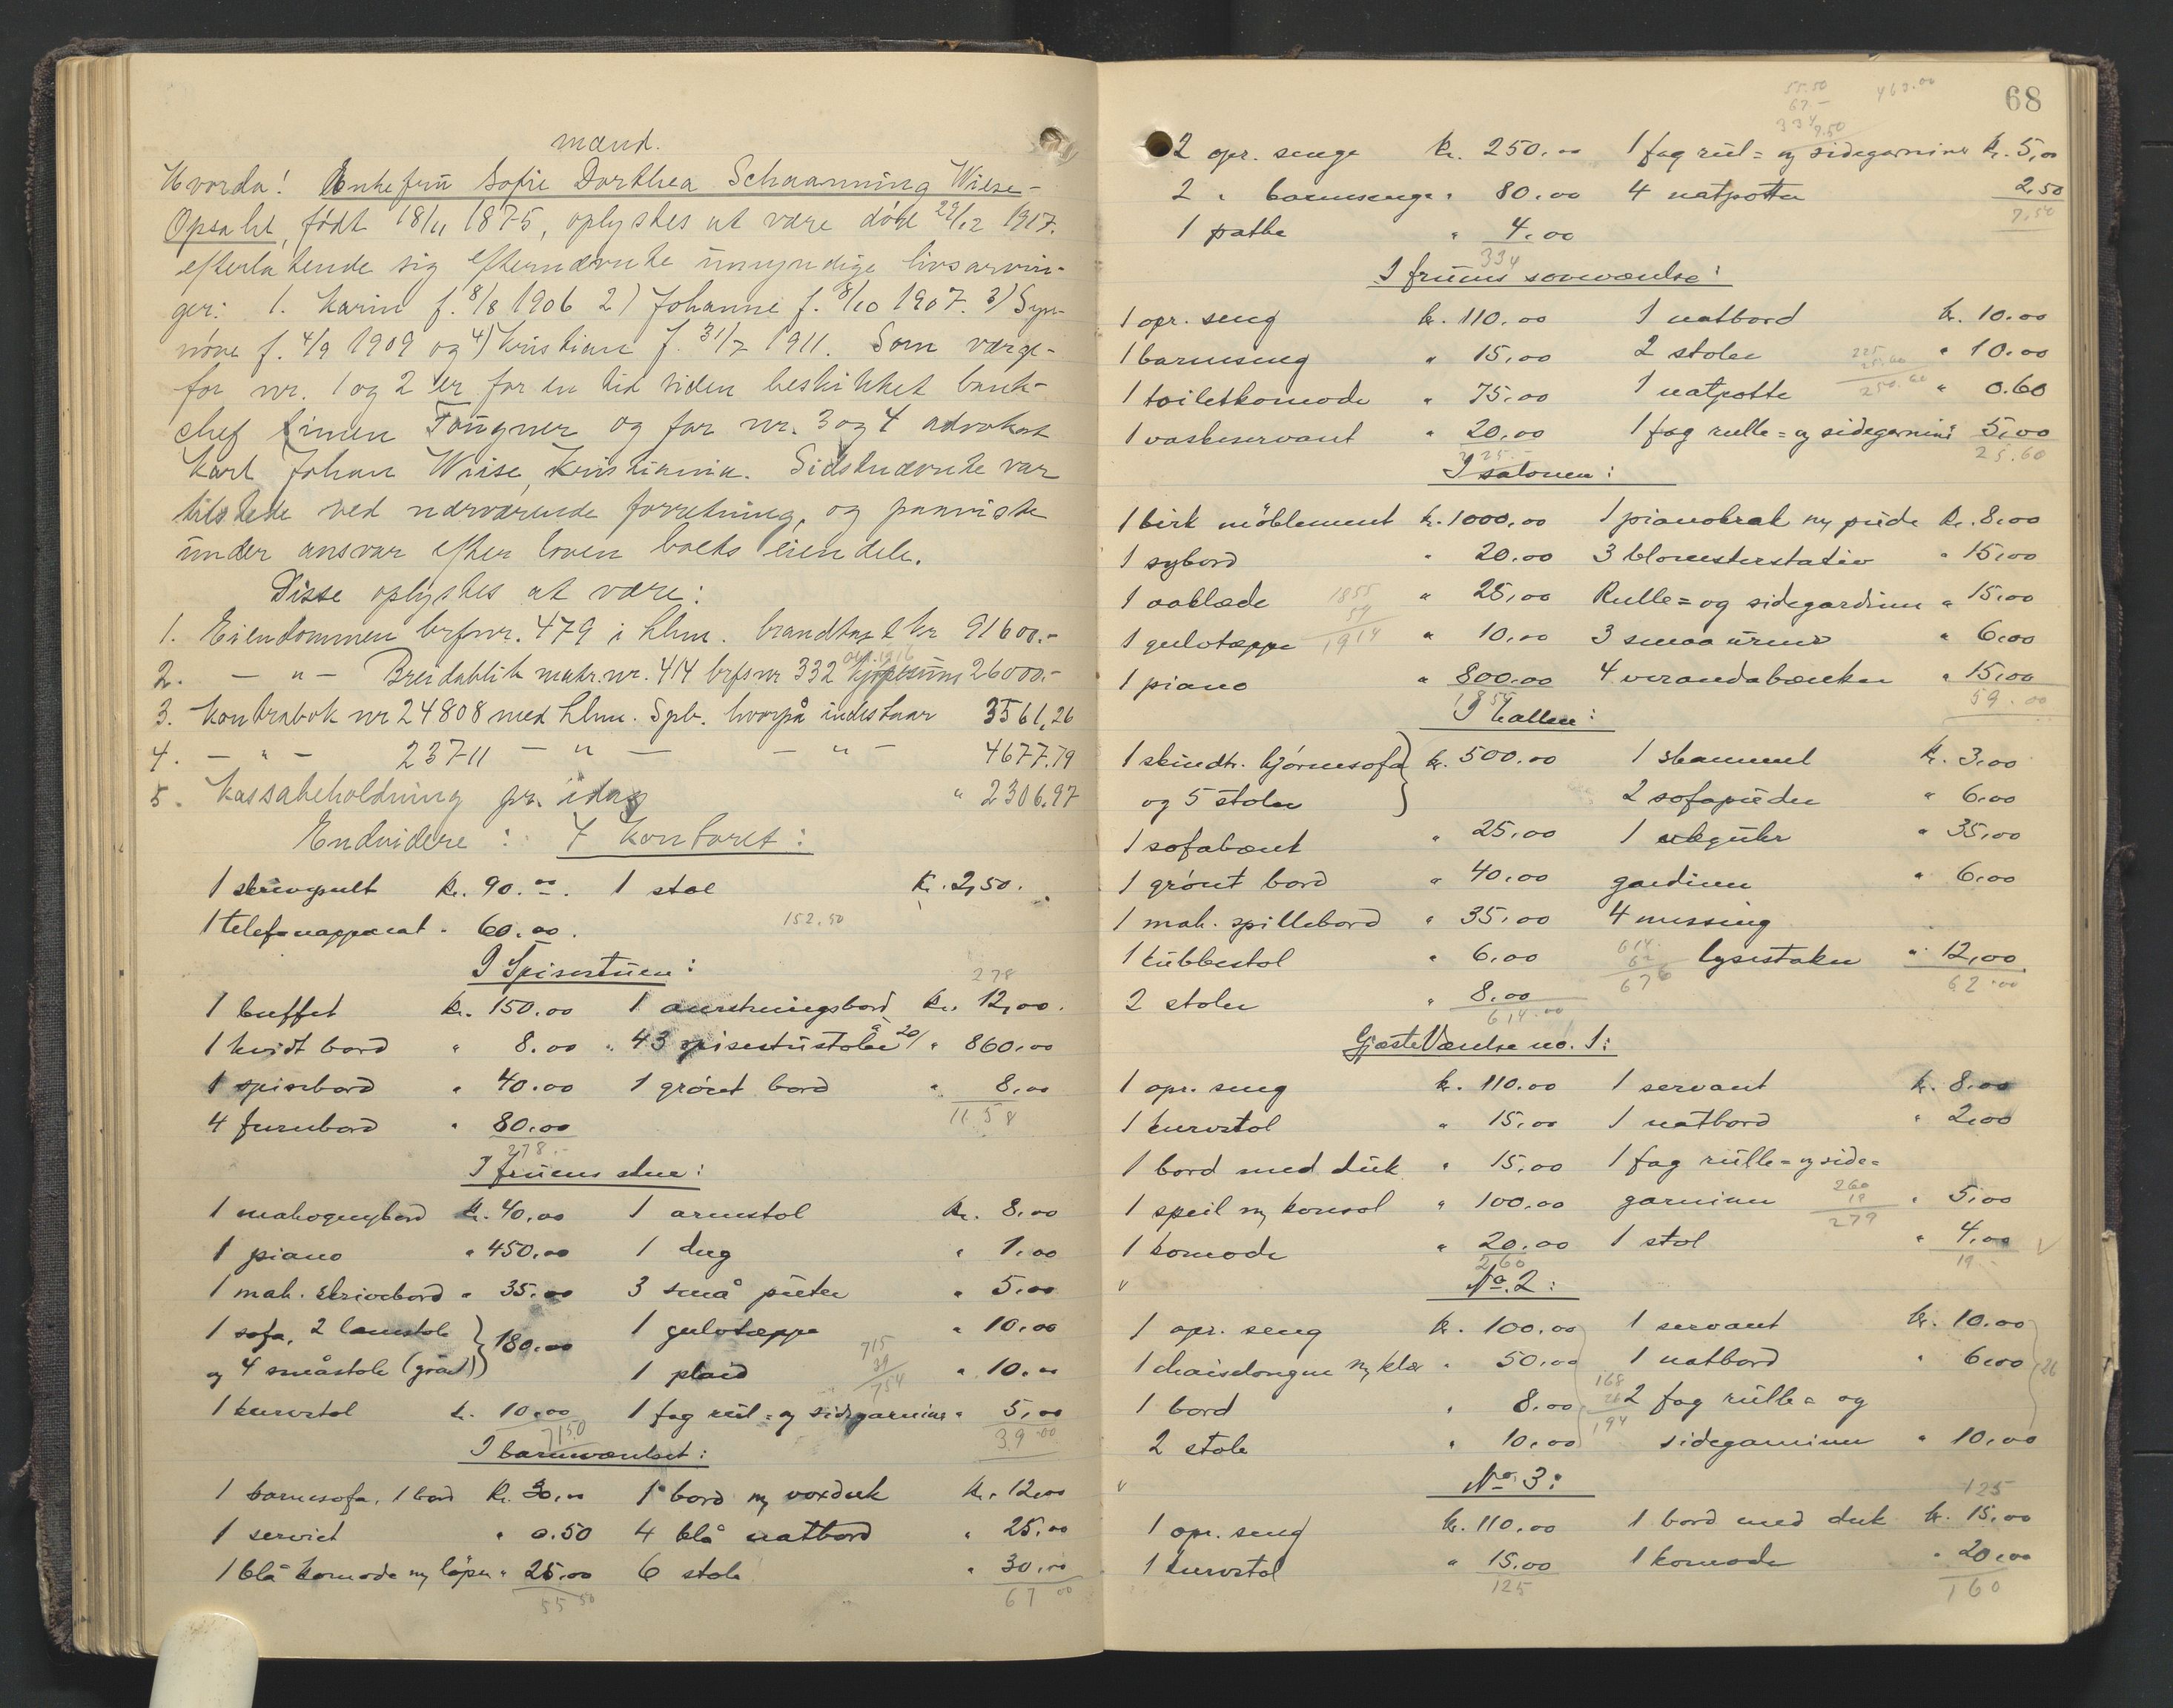 mænd.
Hvorda! Enkefru Sofie Dorthea Schaanning Wiese-
Opsahl, født 18/11 1875, oplystes at være død 29/12 1917.
efterlatende sig efternævnte umyndige livsarvin-
ger: 1. Karin f. 8/8 1906 2) Johanne f. 8/10 1907. 3) Syn-
nøve f. 4/9 1909 og 4) Kristian f. 31/7 1911. Som værge-
for nr. 1 og 2 er for en tid siden beskikket bank-
chef Simen Fougner og for nr. 3 og 4 advokat
Karl Johan Wiise, Kristiania. Sidstnævnte var
tilstede ved nærværende forretning, og paaviste
under ansvar efter loven boets eiendele.
Disse oplystes at være:
1. Eiendommen brfnr. 479 i Lhm. brandtaxt kr 91600.-
2. — " — Breidablik matr.nr. 414 brfsnr 332 kjøpesum 26000.-
3. Kontrabok nr 24808 med Lhm. Spb. hvorpå indestaar 3561,26
4. — " — 23711 — " — — " — 4677.79
5. Kassabeholdning pr. idag " 2306.97
Endvidere: I kontoret:
1 skrivepult kr. 90.00. 1 stol kr. 2,50.
1 telefonapparat " 60.00. 152.50
I Spisestuen:
278
1 buffet kr. 150.00 1 anretningsbord kr. 12,00.
1 hvidt bord " 8.00 " 43 spisestustoler à 20/ " 860,00
1 spisebord " 40.00 1 grønt bord " 8,00
4 furubord " 80.00 1158
278.-
I fruens stue:
1 mahognybord kr. 40,00 1 armstol kr. 8,00
1 piano " 450,00 1 dug " 1.00
1 mah. skrivebord " 35.00 3 små puter " 5,00
1 sofa, 2 lænstole } 180.00 1 gulvtæppe " 10,00
og 4 småstole (grøn) 1 plaid 715 39 754 " 10.00
1 kurvstol kr. 10.00 1 fag rul= og sidegardiner " 5,00
715.0 39.00
I barneværelset:
1 barnesofa, 1 bord kr. 30,00 1 bord m/ voxduk kr. 12,00
1 serviet " 0.50 4 blå natbord " 25,00
1 blå komode m/ løper " 25,00 6 stole " 30,00
55 50 67 00
55.50 463.00
67.-
334
7.50
68
2 opr. senge kr. 250.00 1 fag rul= og sidegardiner kr. 5,00
2 " barnesenge " 80.00 4 natpotter 2,50
1 " 4.00 7,50
334
I fruens soveværelse:
1 opr. seng kr. 110.00 1 natbord kr. 10.00
1 barneseng " 15,00 2 stoler " 10.00
1 toiletkomode " 75,00 1 natpotte 225 25.60 250.60 " 0.60
1 vaskeservant " 20,00 1 fag rulle= og sidegardiner 5,00
225.- 25.60
I salonen:
1 birk møblement kr. 1000,00 1 pianokrak m/ pude kr. 8,00
1 sybord " 20.00 3 blomsterstativ " 15,00
1 aaklæde 1855 " 25,00 Rulle= og sidegardiner " 15,00
1 gulvtæppe 59 1914 " 10,00 3 smaa urner " 6,00
1 piano " 800,00 4 verandabænker " 15,00
1855 59.00
I hallen:
1 skindtr. hjørnesofa } kr. 500.00 1 skammel kr. 3,00
og 5 stoler 2 sofapuder " 6,00
1 sofabænk " 25,00 1 " 35,00
1 grønt bord " 40.00 gardiner " 6,00
1 mah. spillebord " 35,00 4 messing
1 kubbestol " 6,00 614 62 676 lysestaker " 12,00
2 stoler " 8.00 62.00
614.00
GjæsteVærelse no. 1:
1 opr. seng kr. 110.00 1 servant kr. 8.00
1 kurvstol " 15,00 1 natbord " 2,00
1 bord med duk " 15,00 1 fag rulle= og side=
1 speil m/ konsol " 100.00 gardiner 260 19 279 " 5,00
1 komode " 20.00 1 stol " 4,00 V
260 19
No. 2:
1 opr. seng kr. 100.00 1 servant kr. 10.00
1 chaiselongue m/ " 50,00 1 natbord " 6,00 26
1 bord " 8,00 168 26 194 2 fag rulle= og
2 stole " 10,00 sidegardiner " 10,00
No. 3:
125
1 opr. seng kr. 110,00 1 bord med duk kr. 15,00
1 kurvstol " 15,00 1 komode " 20,00
125 160